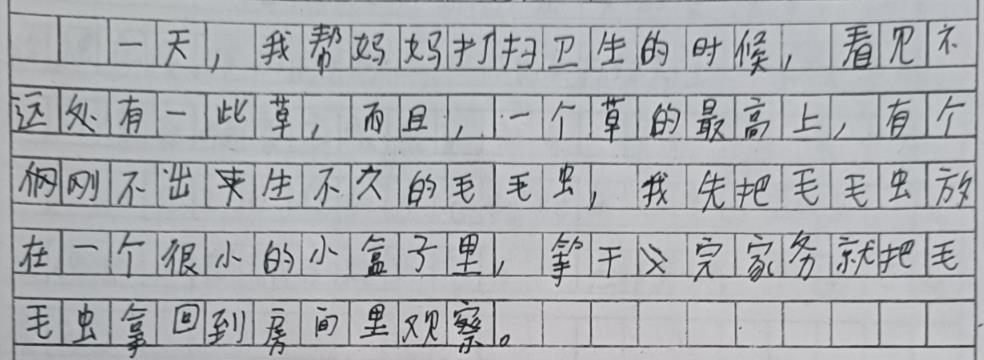 一天，我帮妈妈打扫卫生的时候，看见不
远处有一此草，而且，一个草的最高上，有个
刚刚不出来生不久的毛毛虫，我先把毛毛虫放
在一个很小的小盒子里，等干完家务就把毛
毛虫拿回到房间里观察。